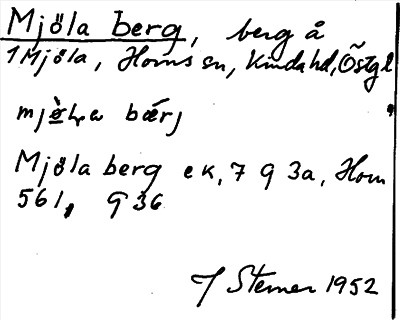 Mjöla berg, berg å
1 Mjöla, Horns sn, Kinda hd, Östgl
bærj
Mjöla berg ek, 7 9 3a, Horn
561, 936
J Sterner 1952